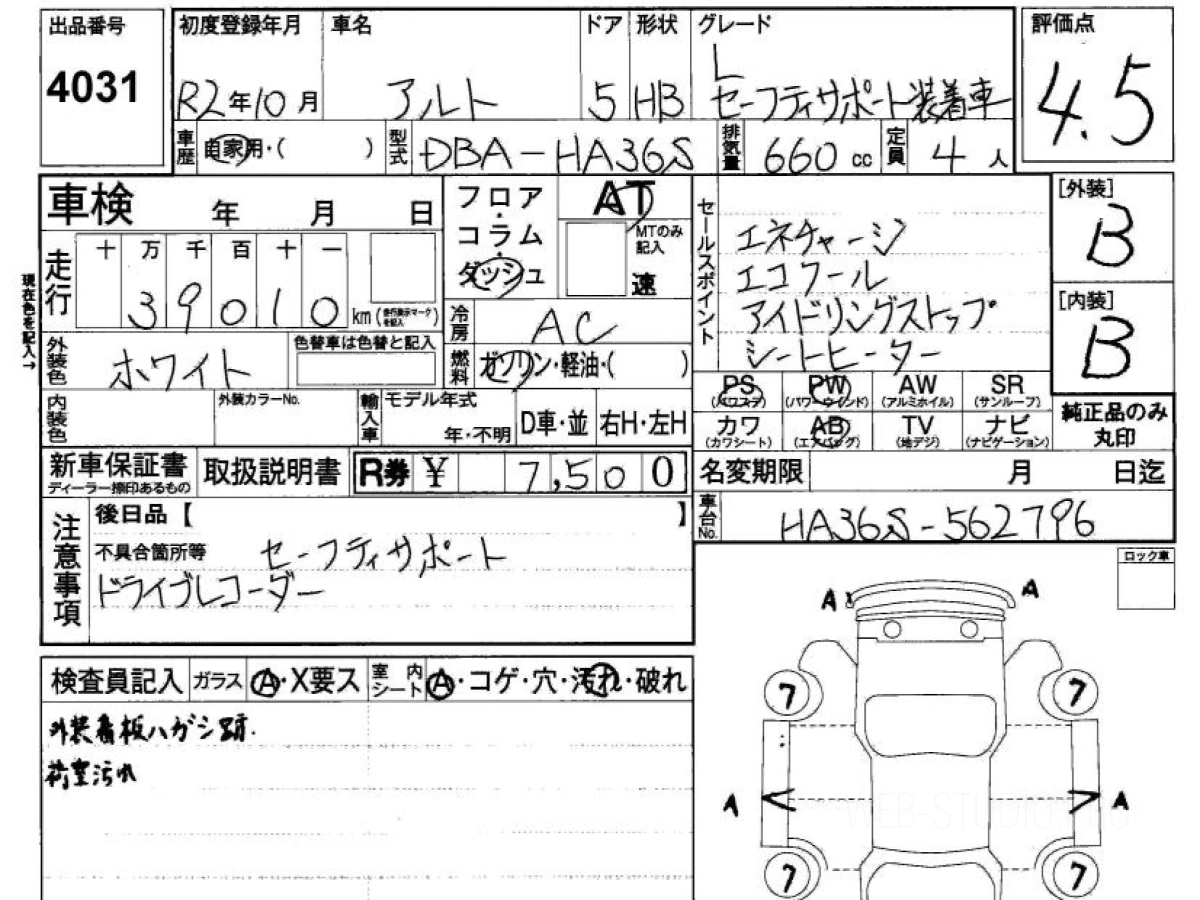 出品番号
4031
初度登録年月
R2年10月
車名
アルト
ドア
5
形状
HB
グレード
L
セーフティサポート装着車
評価点
4.5
車歴
自家用・( )
型式
DBA-HA36S
排気量
660 cc
定員
4人
車検 年 月 日
フロア・コラム・ダッシュ
AT
MTのみ記入
速
セールスポイント
エネチャージ
エコクール
アイドリングストップ
シートヒーター
[外装]
B
[内装]
B
現在色を記入→
走行
十 万 千 百 十 一
3 9 0 1 0 km(走行表示マークを記入)
冷房
AC
外装色
ホワイト
色替車は色替と記入
燃料
ガソリン・軽油・( )
PS (パワステ)
PW (パワーウインド)
AW (アルミホイル)
SR (サンルーフ)
カワ (カワシート)
AB (エアバッグ)
TV (地デジ)
ナビ (ナビゲーション)
純正品のみ丸印
内装色
外装カラーNo.
輸入車
モデル年式
年・不明
D車・並
右H・左H
新車保証書
ディーラー捺印あるもの
取扱説明書
R券 ¥ 7,500
名変期限 月 日迄
車台No.
HA36S-562796
注意事項
後日品【 】
不具合箇所等 セーフティサポート
ドライブレコーダー
ロック車
A A
フ フ
A A
フ フ
検査員記入
ガラス
A・X要ス
室内シート
A・コゲ・穴・汚れ・破れ
外装看板ハガシ跡.
荷室汚れ
WEB-STUDIO.PRO